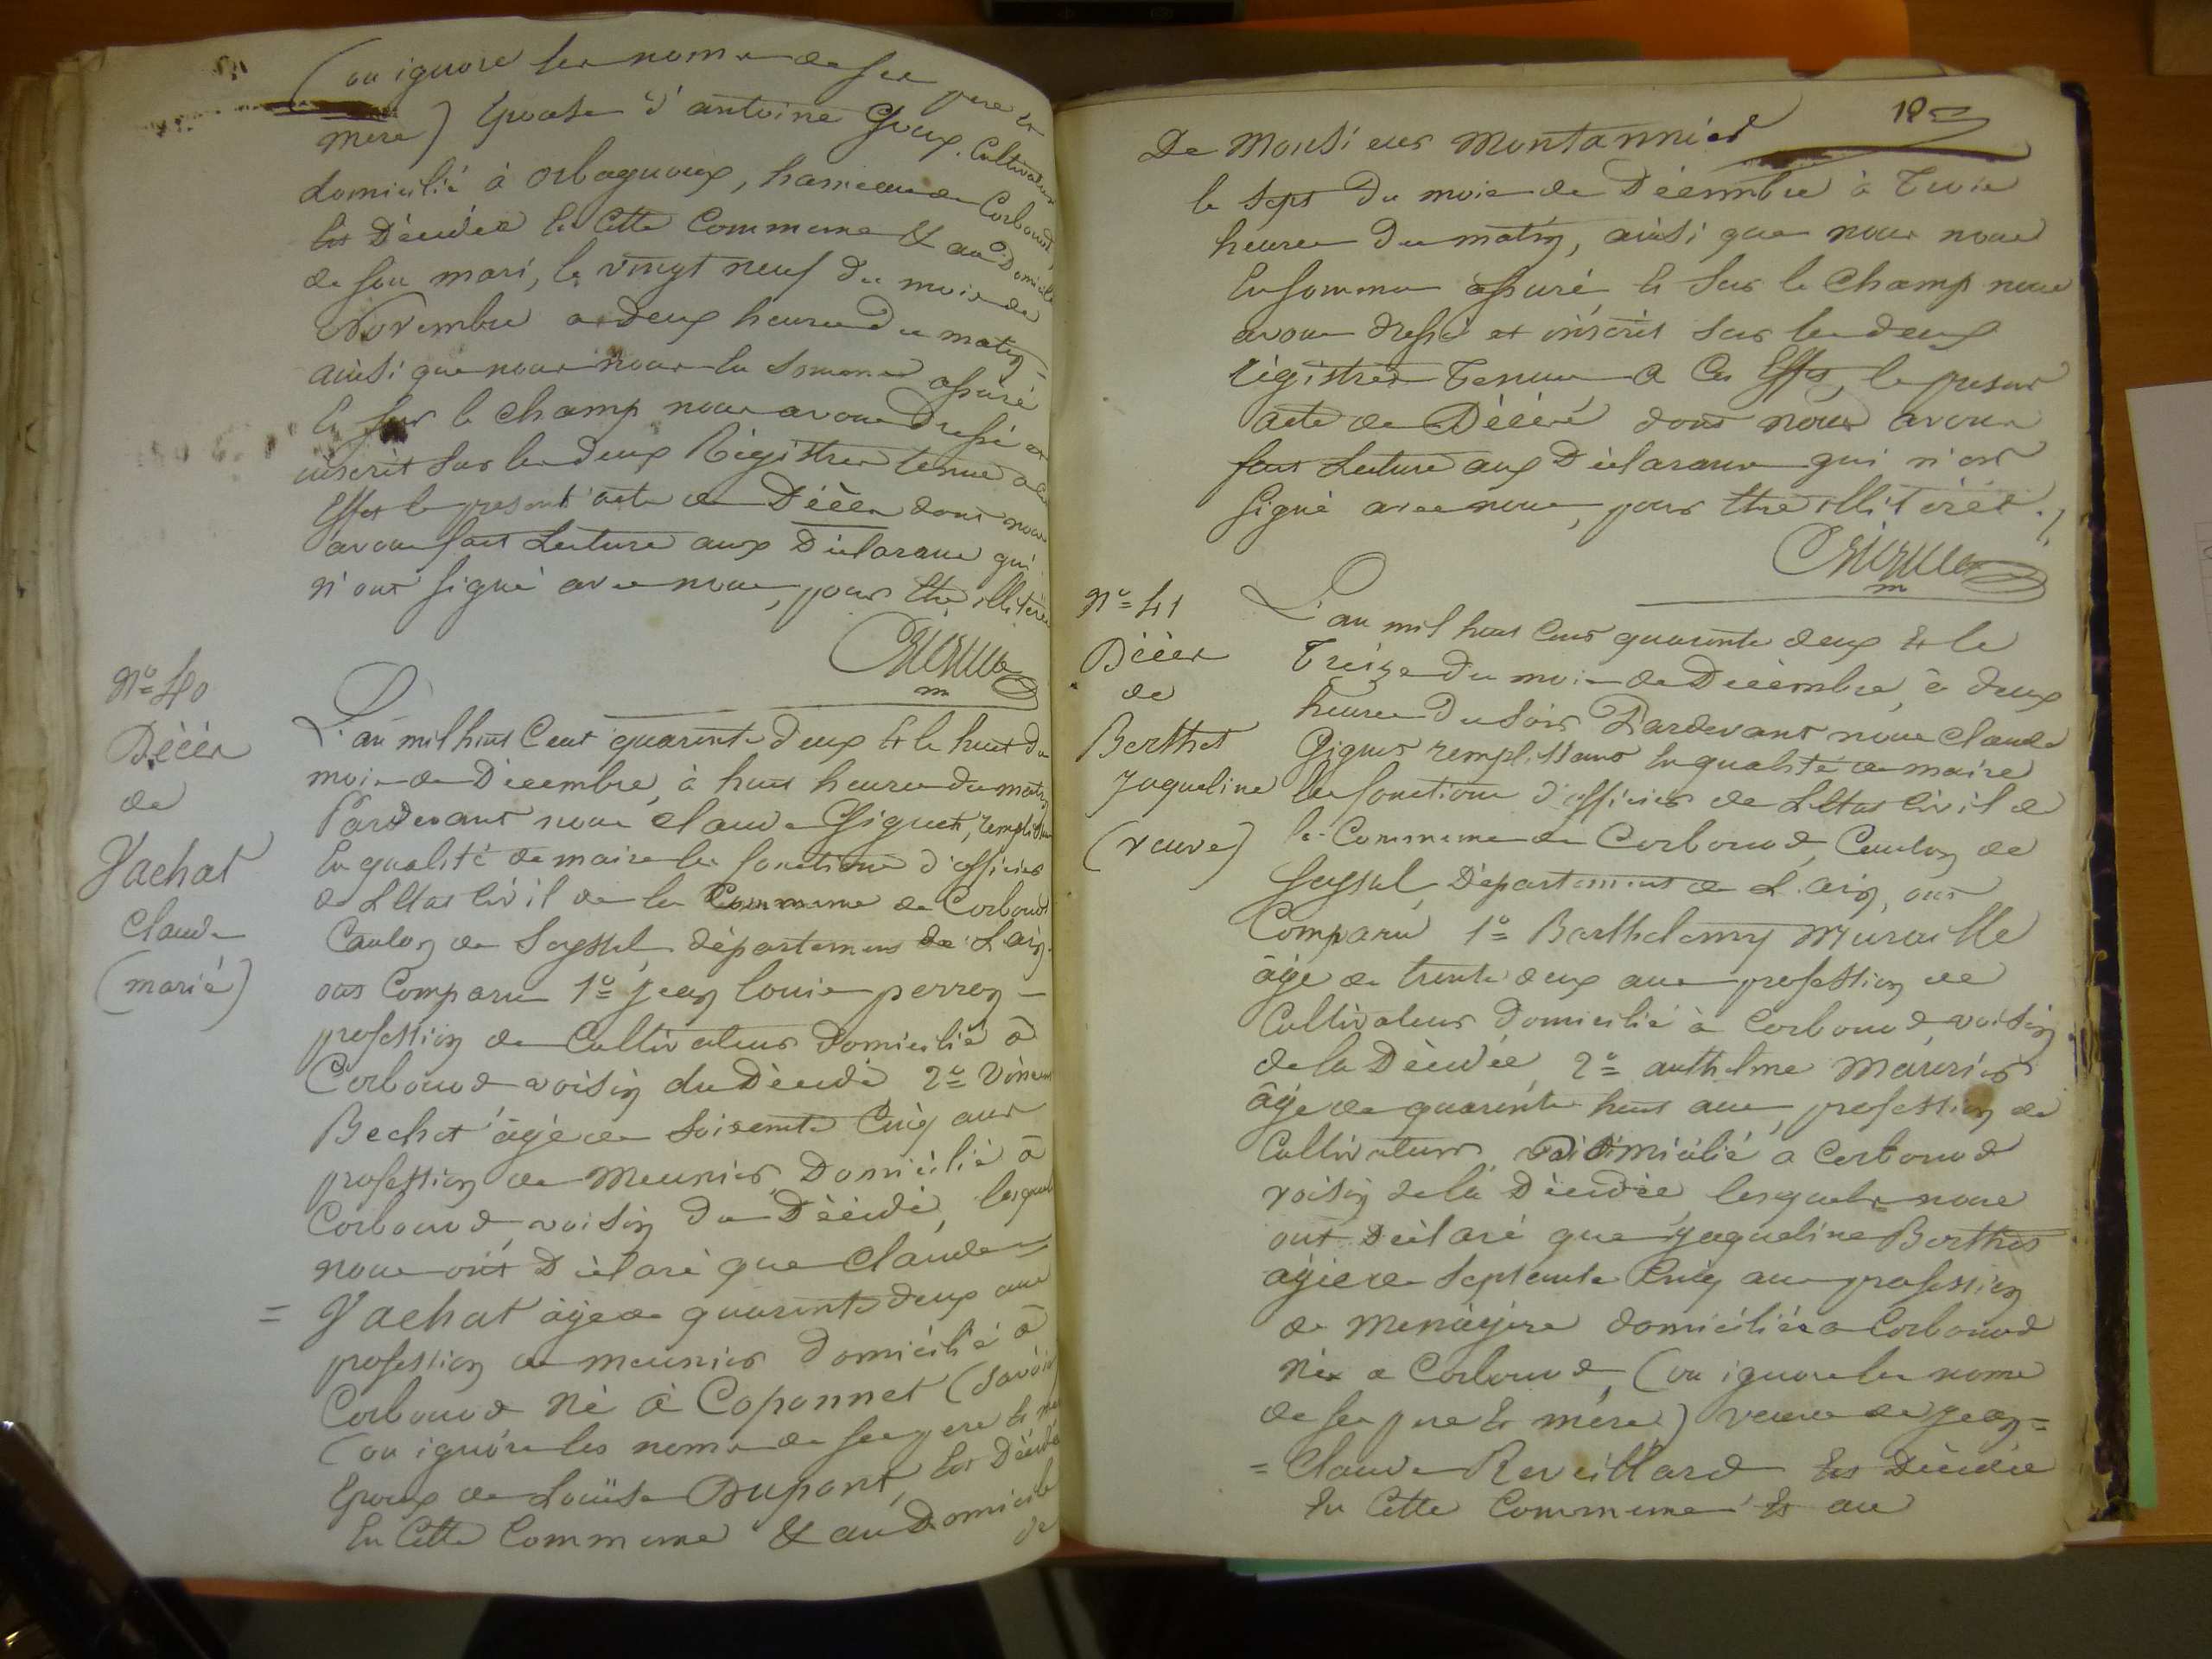 (on ignore les noms de ses père et
mère) Epouse d'antoine Goux, Cultivateur
domicilié à orbagnoux, hameau de Corbonod,
Est Décédée En Cette Commune & au Domicile
de son mari, le vingt neuf du mois de
Novembre a deux heures du matin
ainsi que nous nous en sommes assuré
Et sur le champ nous avons dressé et
inscrit sur les deux Régistres tenus a cet
Effet le present acte de Décès dont nous
avons fait Lecture aux Déclarans qui
n'ont signé avec nous, pour Etre illiterés
Nº 40
Décès
de
Vachat
Claude
(marié)
L'an mil huit Cent quarente deux Et le huit du
mois de Décembre, à huit heures du matin
Pardevant nous Claude Gignet, remplissant
En qualité de maire les fonctions d'officier
de L'Etat Civil de la Commune de Corbonod
Canton de Seyssel, département de L'ain
ont Comparu 1º Jean Louis perron
profession de Cultivateur domicilié à
Corbonod voisin du Décédé 2º Vincent
Bechet âgé de soixente Cinq ans
profession de Meunier Domicilié à
Corbonod voisin du Décédé, lesquels
nous ont Déclaré que Claude
= Vachat âgé de quarente deux ans
profession de meunier domicilié à
Corbonod Né à Coponnet (Savoie)
(on ignore les noms de ses pere Et mere
Epoux de Louïse Dupont, Est Décédé
En Cette Commune & au Domicile
de
18
De Monsieur Montannier
le Sept du mois de Décembre à trois
heures du matin, ainsi que nous nous
En sommes assuré, Et sur le champ nous
avons dressé et inscrit sur les deux
régistres tenus a Cet Effet, le present
acte de Décès dont nous avons
fait Lecture aux Déclarans qui n'ont
signé avec nous, pour Etre illiterés.
Nº 41
Décès
de
Berthet
Jaqueline
(veuve)
L'an mil huit Cent quarente deux Et le
Treize du mois de Décembre, à deux
heures du soir Pardevant nous Claude
Gignet remplissant En qualité de maire
les fonctions d'officier de L'Etat Civil de
la Commune de Corbonod, Canton de
Seyssel, Département de L'ain, ont
Comparu 1º Barthelemy Muraille
âgé de trente deux ans profession de
Cultivateur domicilié à Corbonod voisin
de la Décédée, 2º anthelme Maurier
âgé de quarente huit ans, profession de
Cultivateur, domicilié a Corbonod
voisin de la Décédée, lesquels nous
ont Déclaré que Jaqueline Berthet
agée de septente Cinq ans profession
de Menagère domiciliée a Corbonod
Née a Corbonod, (on ignore les noms
de ses pere Et mére) veuve de Jean=
= Claude Reveillard Est Décédée
En Cette Commune Et au